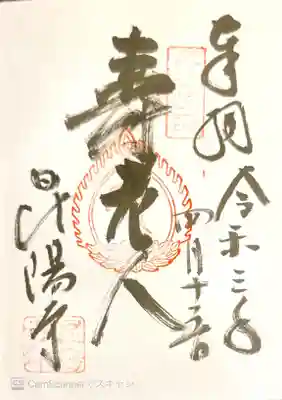 奉拝 令和三年
四月十二日
寿老人
陽寺
CS CamScanner でスキャン